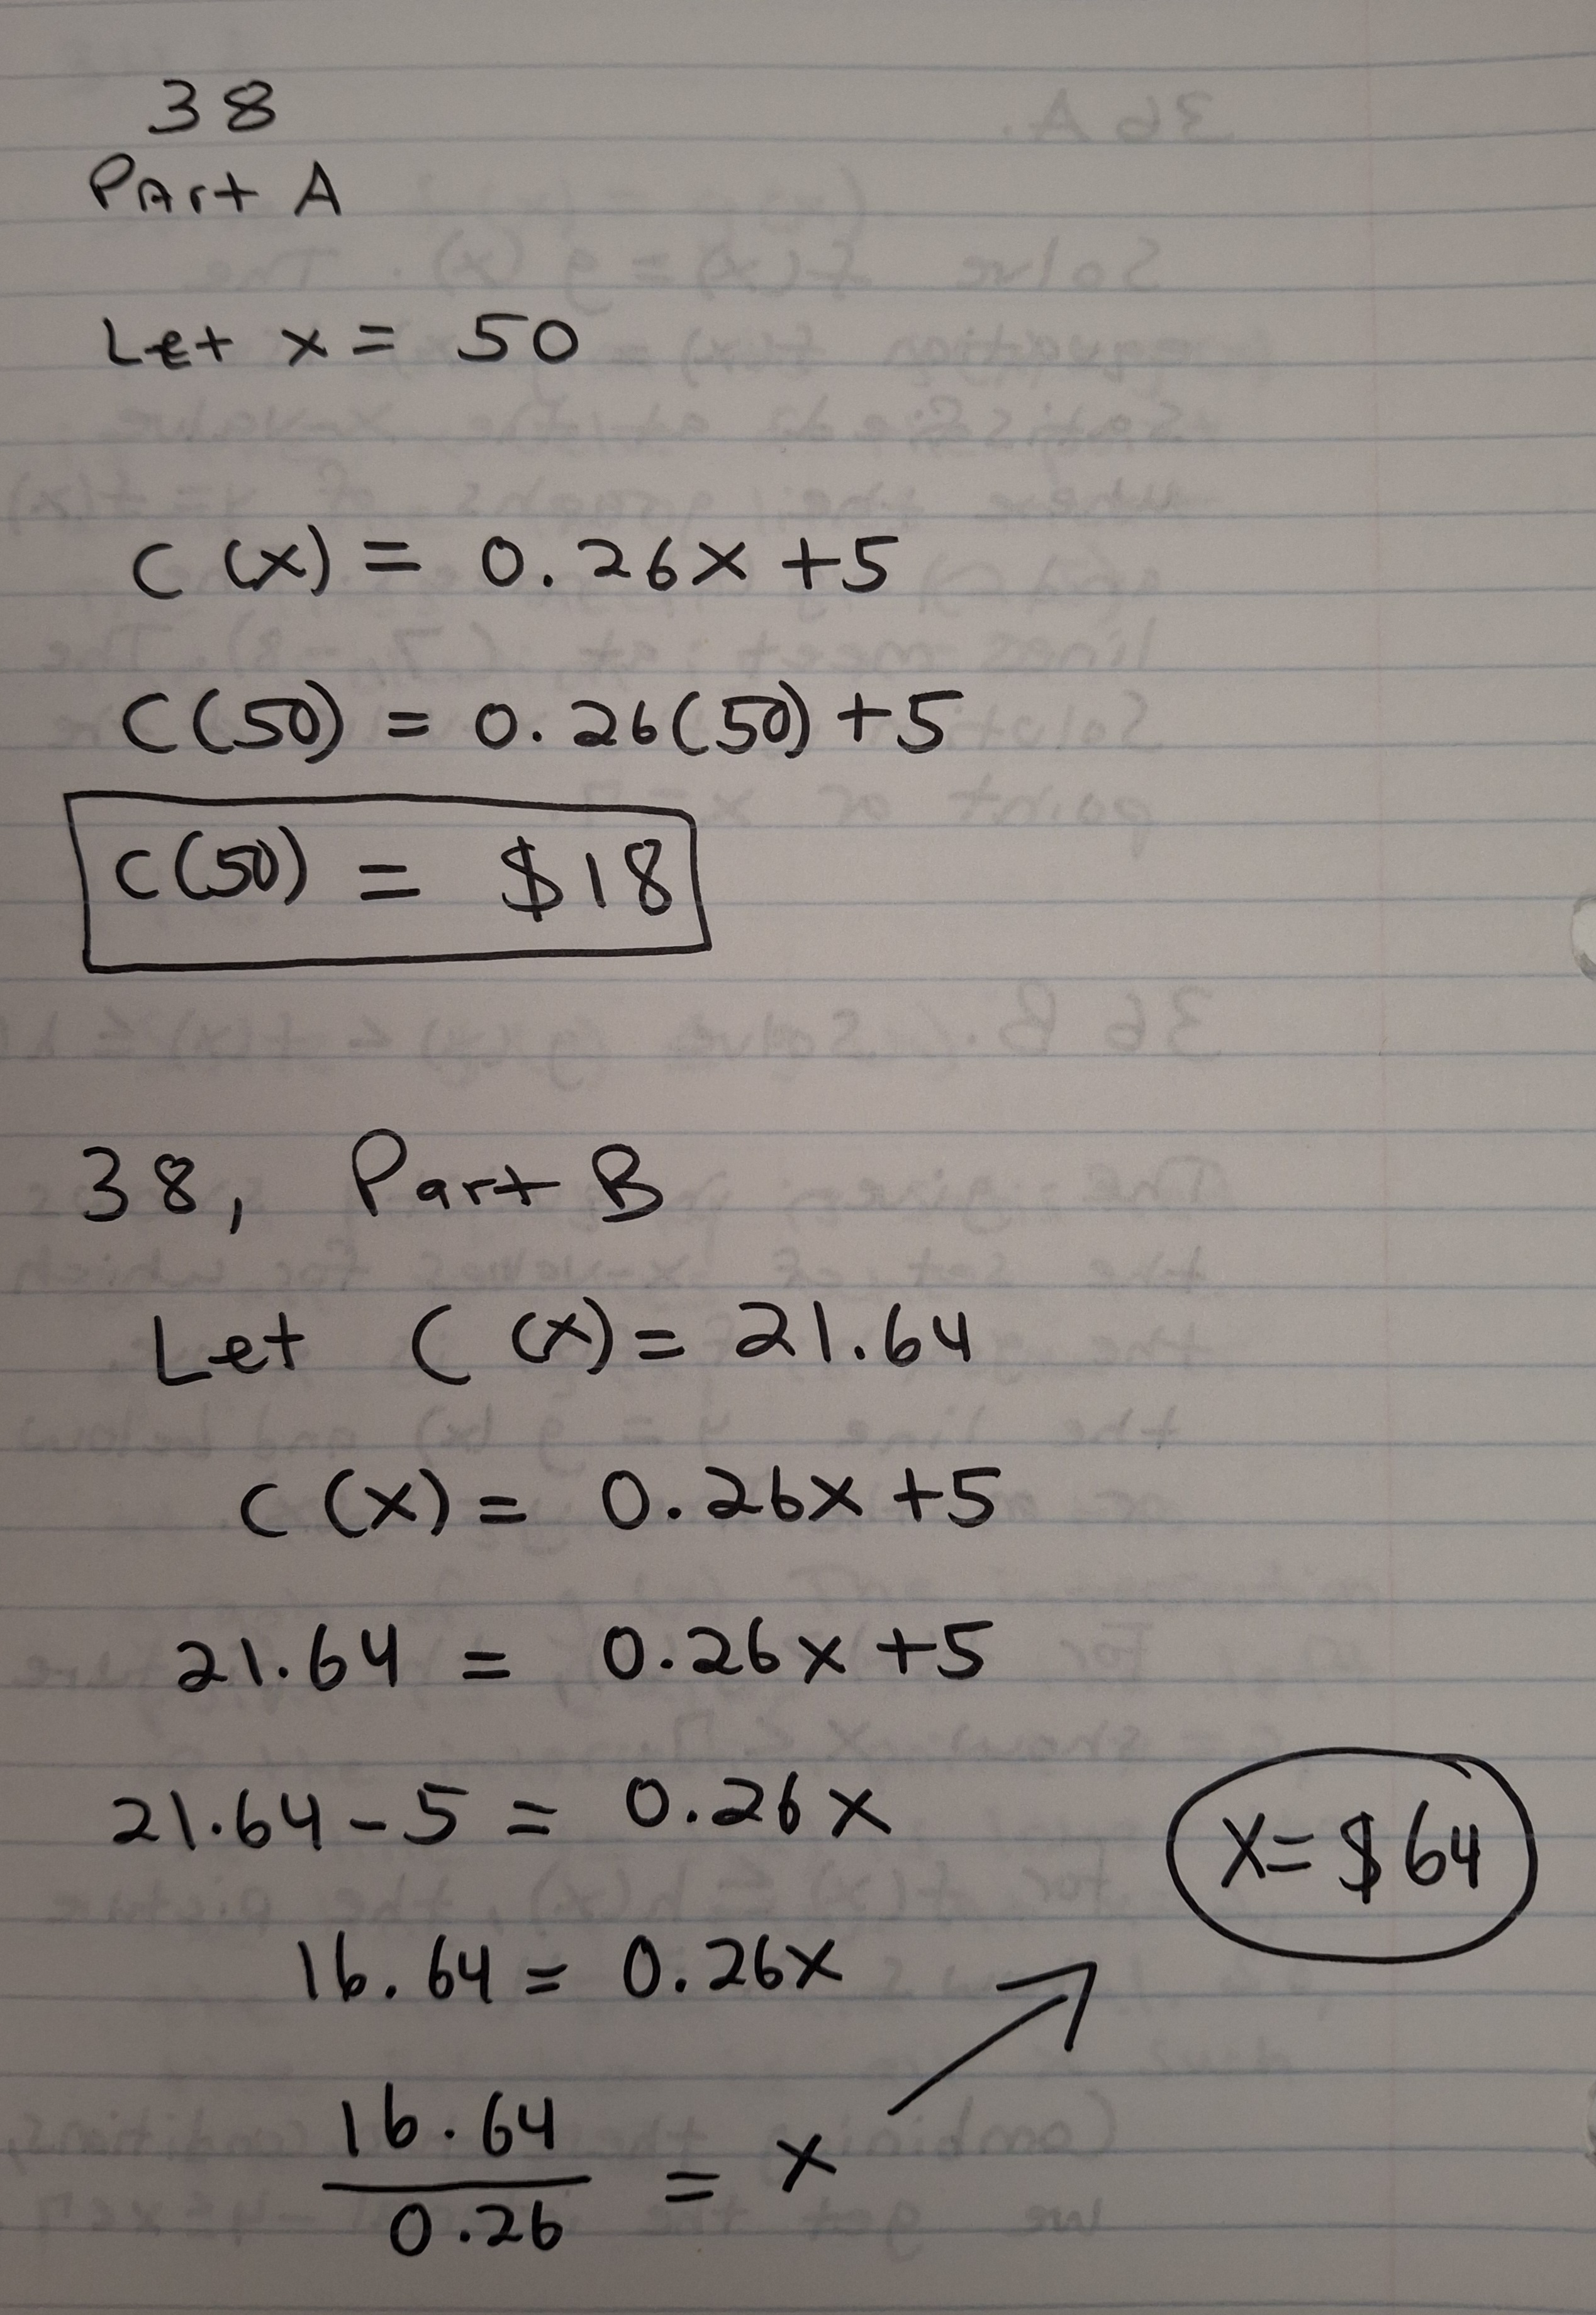 38
Part A
Let x = 50
C(x) = 0.26x + 5
C(50) = 0.26(50) + 5
C(50) = $18
38, Part B
Let C(x) = 21.64
C(x) = 0.26x + 5
21.64 = 0.26x + 5
21.64 - 5 = 0.26x
x = $64
16.64 = 0.26x
16.64
0.26
= x